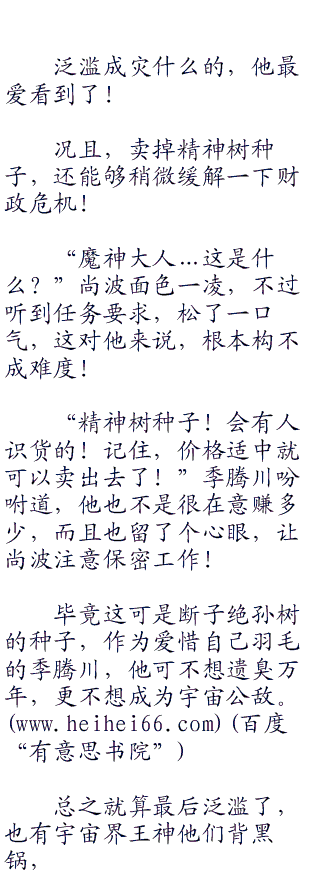 泛滥成灾什么的，他最
爱看到了！
况且，卖掉精神树种
子，还能够稍微缓解一下财
政危机！
“魔神大人…这是什
么？”尚波面色一凌，不过
听到任务要求，松了一口
气，这对他来说，根本构不
成难度！
“精神树种子！会有人
识货的！记住，价格适中就
可以卖出去了！”季腾川吩
咐道，他也不是很在意赚多
少，而且也留了个心眼，让
尚波注意保密工作！
毕竟这可是断子绝孙树
的种子，作为爱惜自己羽毛
的季腾川，他可不想遗臭万
年，更不想成为宇宙公敌。
(www.heihei66.com)(百度
“有意思书院”)
总之就算最后泛滥了，
也有宇宙界王神他们背黑
锅，